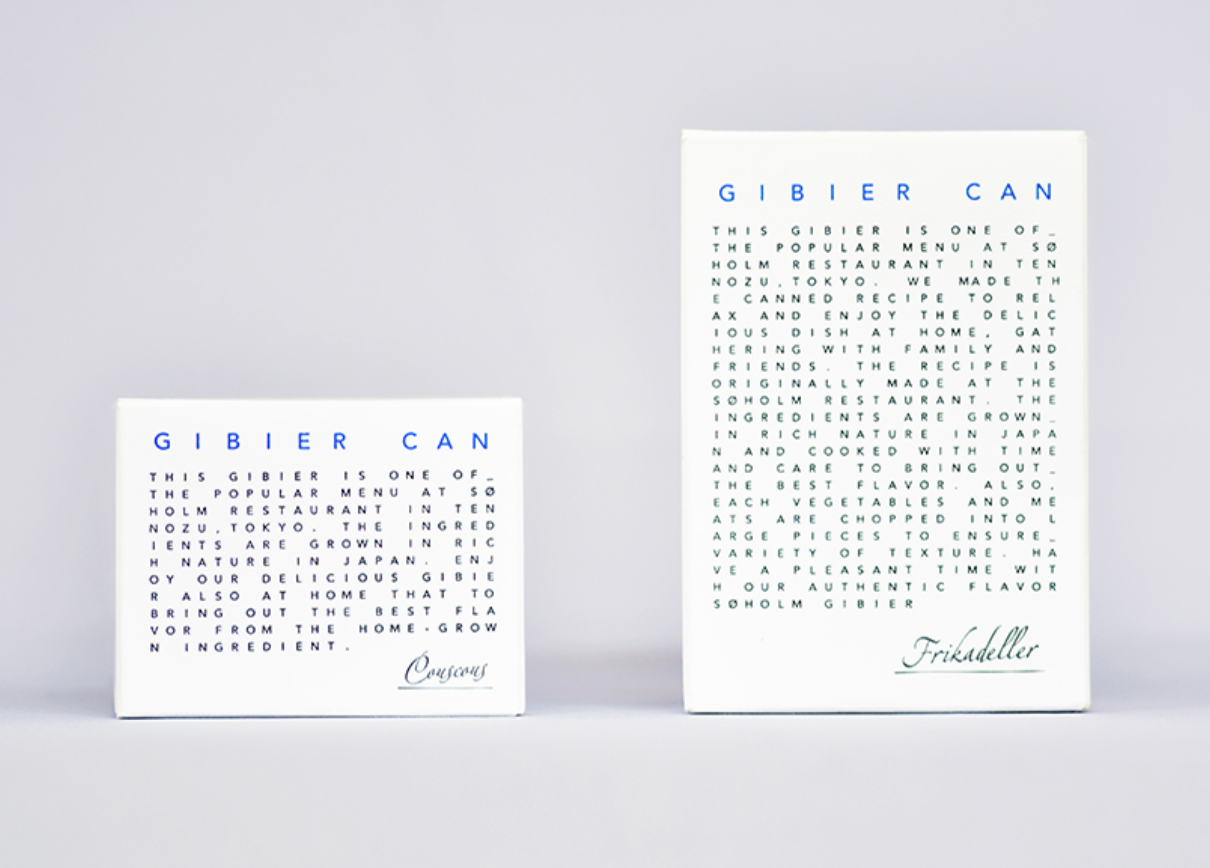 GIBIER CAN
THIS GIBIER IS ONE OF_
THE POPULAR MENU AT SØ
HOLM RESTAURANT IN TEN
NOZU,TOKYO. THE INGRED
IENTS ARE GROWN IN RIC
H NATURE IN JAPAN. ENJ
OY OUR DELICIOUS GIBIE
R ALSO AT HOME THAT TO
BRING OUT THE BEST FLA
VOR FROM THE HOME-GROW
N INGREDIENT.
Couscous
GIBIER CAN
THIS GIBIER IS ONE OF_
THE POPULAR MENU AT SØ
HOLM RESTAURANT IN TEN
NOZU,TOKYO. WE MADE TH
E CANNED RECIPE TO REL
AX AND ENJOY THE DELIC
IOUS DISH AT HOME, GAT
HERING WITH FAMILY AND
FRIENDS. THE RECIPE IS
ORIGINALLY MADE AT THE
SØHOLM RESTAURANT. THE
INGREDIENTS ARE GROWN_
IN RICH NATURE IN JAPA
N AND COOKED WITH TIME
AND CARE TO BRING OUT_
THE BEST FLAVOR. ALSO,
EACH VEGETABLES AND ME
ATS ARE CHOPPED INTO L
ARGE PIECES TO ENSURE_
VARIETY OF TEXTURE. HA
VE A PLEASANT TIME WIT
H OUR AUTHENTIC FLAVOR
SØHOLM GIBIER
Frikadeller